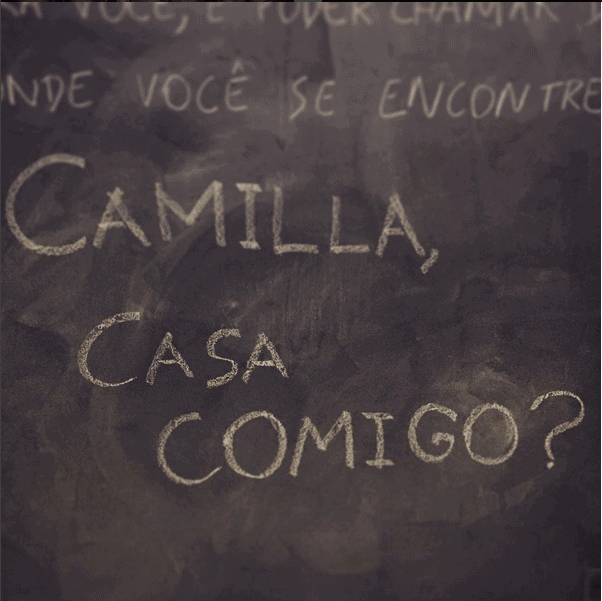 VOCÊ, E PODER CHAMAR
ONDE VOCÊ SE ENCONTRE
CAMILLA,
CASA
COMIGO?